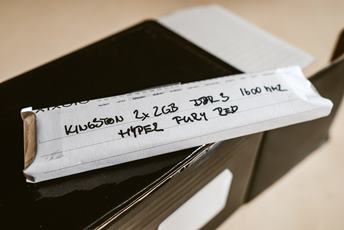 KINGSTON 2x2GB DDR3 1600 MHZ
HYPER FURY RED